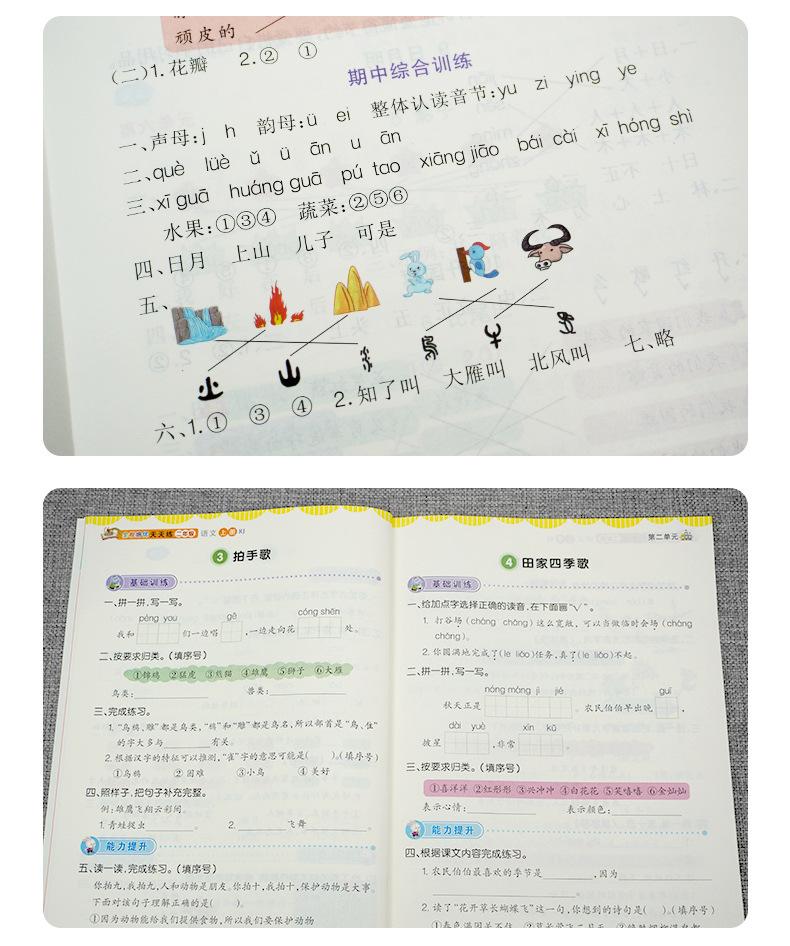 顽皮的
(二)1.花瓣 2.② ①
期中综合训练
一、声母:j h 韵母:ü ei 整体认读音节:yu zi ying ye
二、què lüè ǔ ü ān u ān
三、xī guā huáng guā pú tao xiāng jiāo bái cài xī hóng shì
水果:①③④ 蔬菜:②⑤⑥
四、日月 上山 儿子 可是
五、
六、1.① ③ ④ 2.知了叫 大雁叫 北风叫 七、略
天天练 二年级 语文 上册 RJ
3 拍手歌
基础训练
一、拼一拼,写一写。
péng you gē cóng shēn
我和 们一边唱 ,一边走向花 处。
二、按要求归类。(填序号)
①锦鸡 ②猛虎 ③熊猫 ④雄鹰 ⑤狮子 ⑥大雁
鸟类: 兽类:
三、完成练习。
1.“鸟鸦、雕”都是鸟类,“鸦”和“雕”都是鸟名,所以部首是“鸟、隹”
的字大多与 有关。
2.根据汉字的特征可以推测,“雀”字的意思可能是( )。(填序号)
①乌鸦 ②困难 ③小鸟 ④美好
四、照样子,把句子补充完整。
例:雄鹰飞翔云彩间。
1.青蛙捉虫 。 2. 飞舞 。
能力提升
五、读一读,完成练习。(填序号)
你拍九,我拍九,人和动物是朋友。你拍十,我拍十,保护动物是大事。
下面对该句子理解正确的是( )。
①因为动物能给我们提供食物,所以我们要保护动物
第二单元
4 田家四季歌
基础训练
一、给加点字选择正确的读音,在下面画“√”。
1.打谷场(cháng chǎng)这么宽敞,可以当做临时会场(cháng
chǎng)。
2.你圆满地完成了(le liǎo)任务,真了(le liǎo)不起。
二、拼一拼,写一写。
nóng máng jì jié guī
秋天正是 。农民伯伯早出晚 ,
dài yuè xīn kǔ
披星 ,非常 。
三、按要求归类。(填序号)
①喜洋洋 ②红彤彤 ③兴冲冲 ④白花花 ⑤笑嘻嘻 ⑥金灿灿
表示心情: 表示颜色:
能力提升
四、根据课文内容完成练习。
1.农民伯伯最喜欢的季节是 ,因为
。
2.读了“花开草长蝴蝶飞”这一句,你想到的诗句是( )。(填序号)